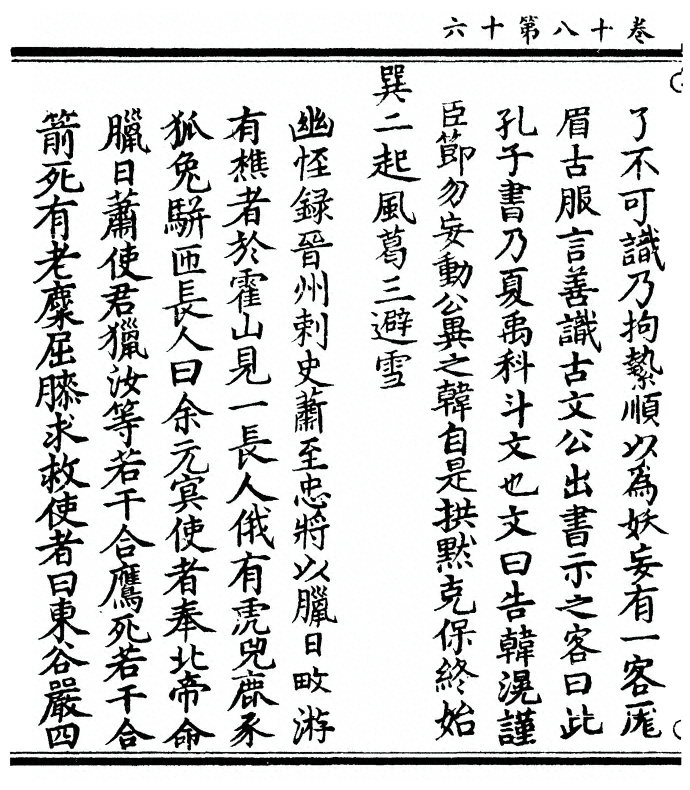 卷十八第十六
了不可識乃拘縶順以為妖妄有一客厖
眉古服言善識古文公出書示之客曰此
孔子書乃夏禹科斗文也文曰告韓滉謹
臣節勿妄動公異之韓自是拱黙克保終始
巽二起風葛三避雪
幽恠録晉州刺史蕭至忠將以臘日畋游
有樵者於霍山見一長人俄有虎兕鹿豕
狐兔駢匝長人曰余元㝠使者奉北帝命
臘日蕭使君獵汝等若干合鷹死若干合
箭死有老麋屈膝求救使者曰東谷嚴四